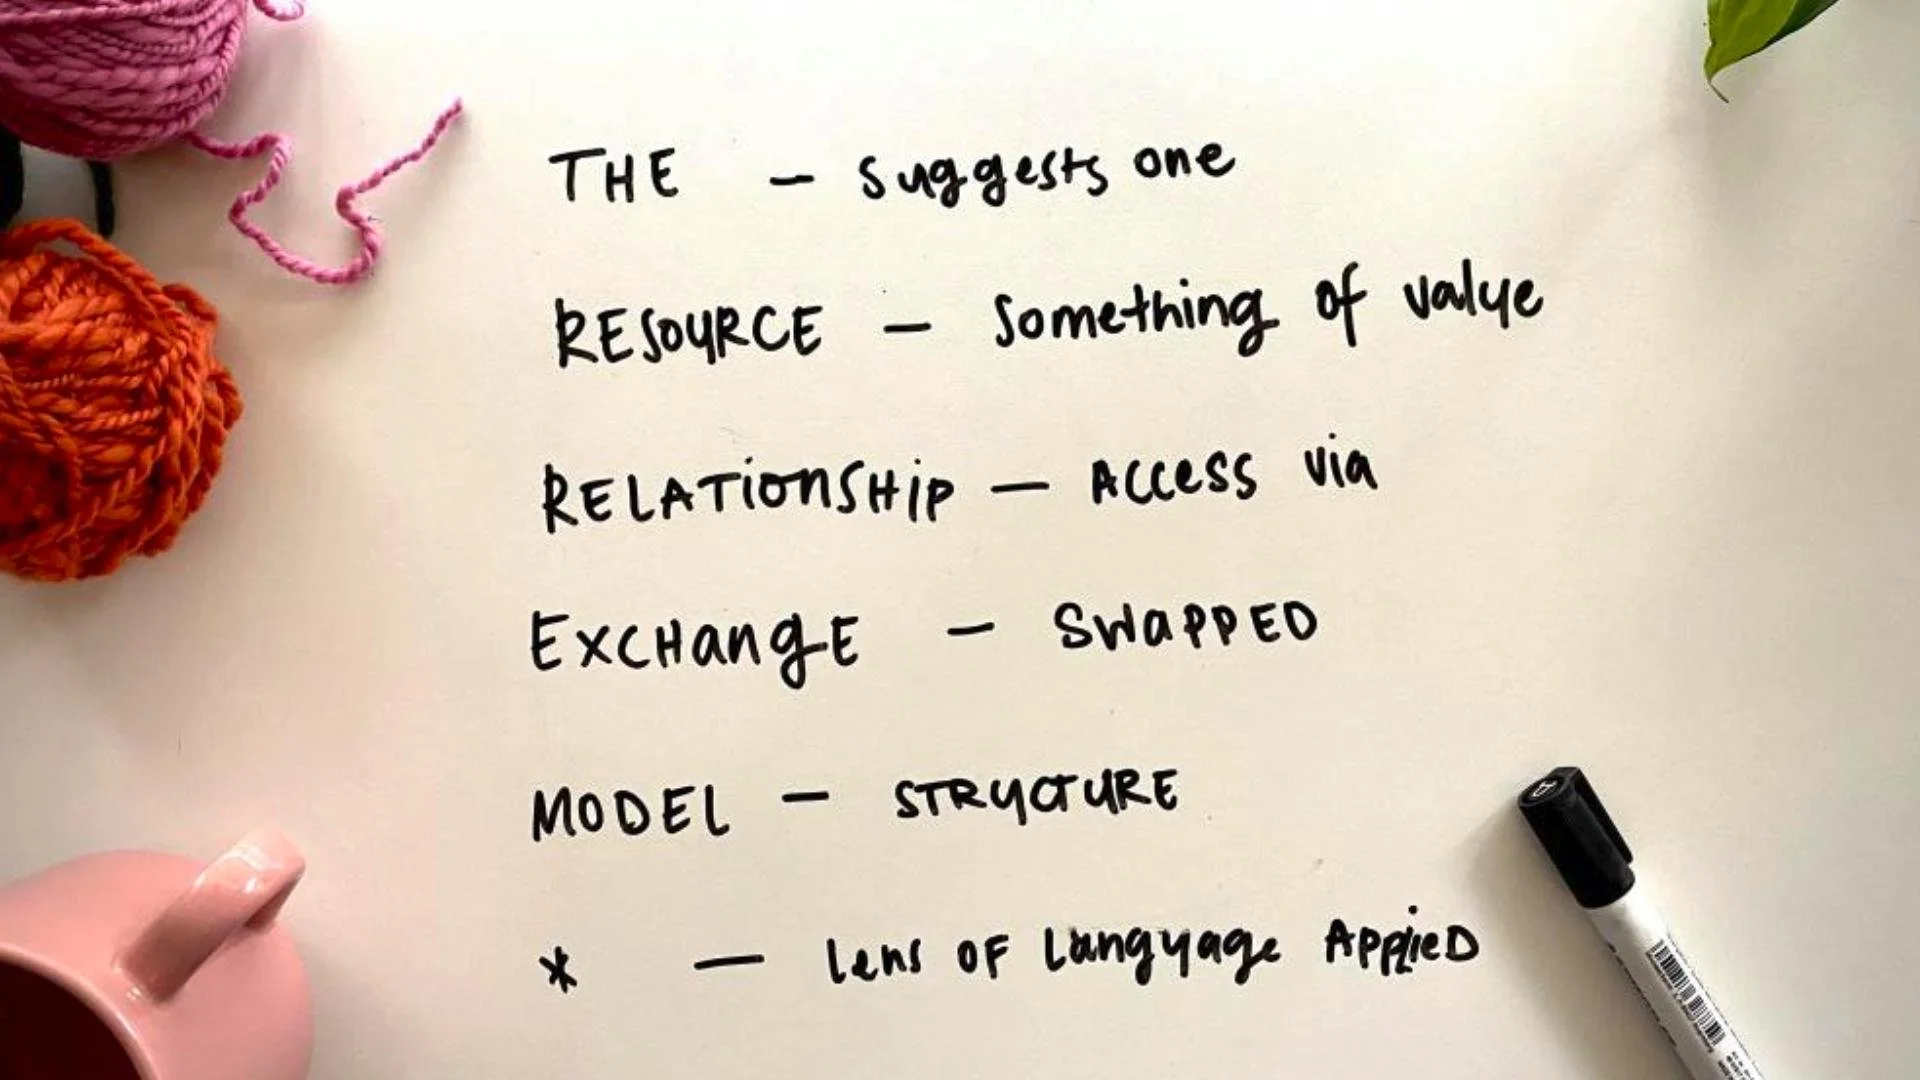 THE — suggests one
RESOURCE — something of value
RELATIONSHIP — Access via
EXCHANGE — SWAPPED
MODEL — STRUCTURE
* — lens OF Language APPlieD